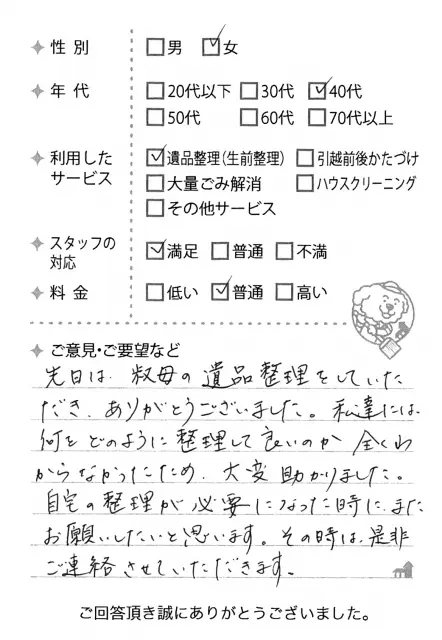 性別 □男 ☑女
年代 □20代以下 □30代 ☑40代
□50代 □60代 □70代以上
利用したサービス ☑遺品整理(生前整理) □引越前後かたづけ
□大量ごみ解消 □ハウスクリーニング
□その他サービス
スタッフの対応 ☑満足 □普通 □不満
料金 □低い ☑普通 □高い
ご意見・ご要望など
先日は、叔母の遺品整理をしていた
だき、ありがとうございました。私達には
何をどのように整理して良いのか全くわ
からなかったため、大変助かりました。
自宅の整理が必要になった時に、また
お願いしたいと思います。その時は、是非
ご連絡させていただきます。
ご回答頂き誠にありがとうございました。